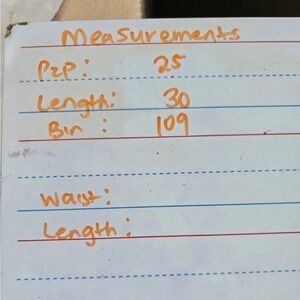 Measurements
P2P: 25
Length: 30
Bin : 109
Waist:
Length: